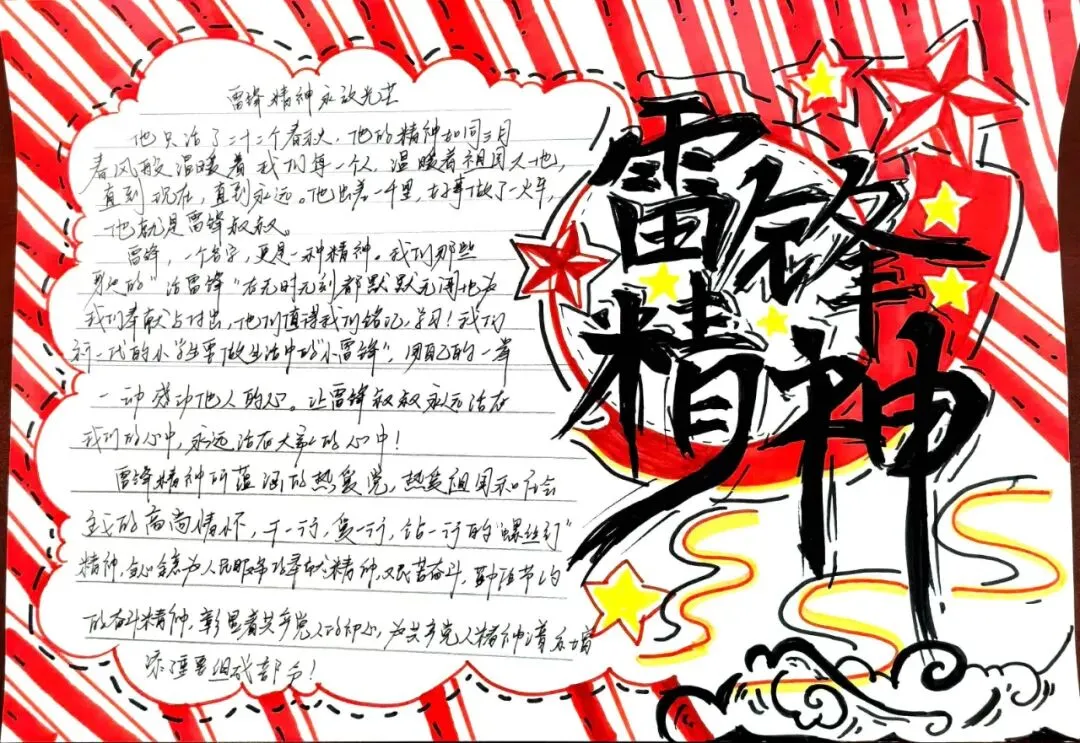 雷锋精神永放光芒
他只活了二十二个春秋,他的精神如同三月
春风般温暖着我们每一个人,温暖着祖国大地,
直到现在,直到永远。他出差一千里,好事做了一火车,
他就是雷锋叔叔。
雷锋,一个名字,更是一种精神。我们那些
身边的“活雷锋”在无时无刻都默默无闻地为
我们奉献与付出,他们值得我们铭记、学习!我们
新一代的小学生要做生活中的“小雷锋”,用自己的一举
一动感动他人的心。让雷锋叔叔永远活在
我们的心中,永远活在大家的心中!
雷锋精神所蕴涵的热爱党,热爱祖国和社会
主义的高尚情怀,干一行,爱一行,钻一行的“螺丝钉”
精神,全心全意为人民服务的奉献精神,艰苦奋斗,勤俭节约
的奋斗精神,彰显着共产党人的初心,为共产党人精神谱系的
重要组成部分!
雷锋
精神